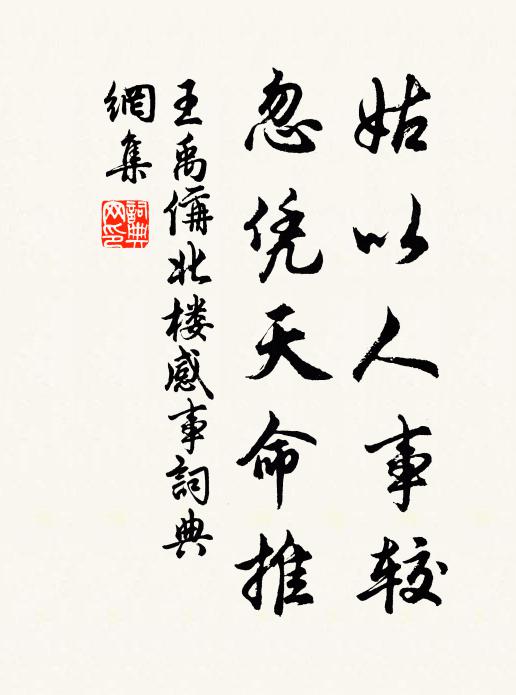 姑以人事较
忽凭天命推
王禹偁北楼感事詞典
網集
詞典網印